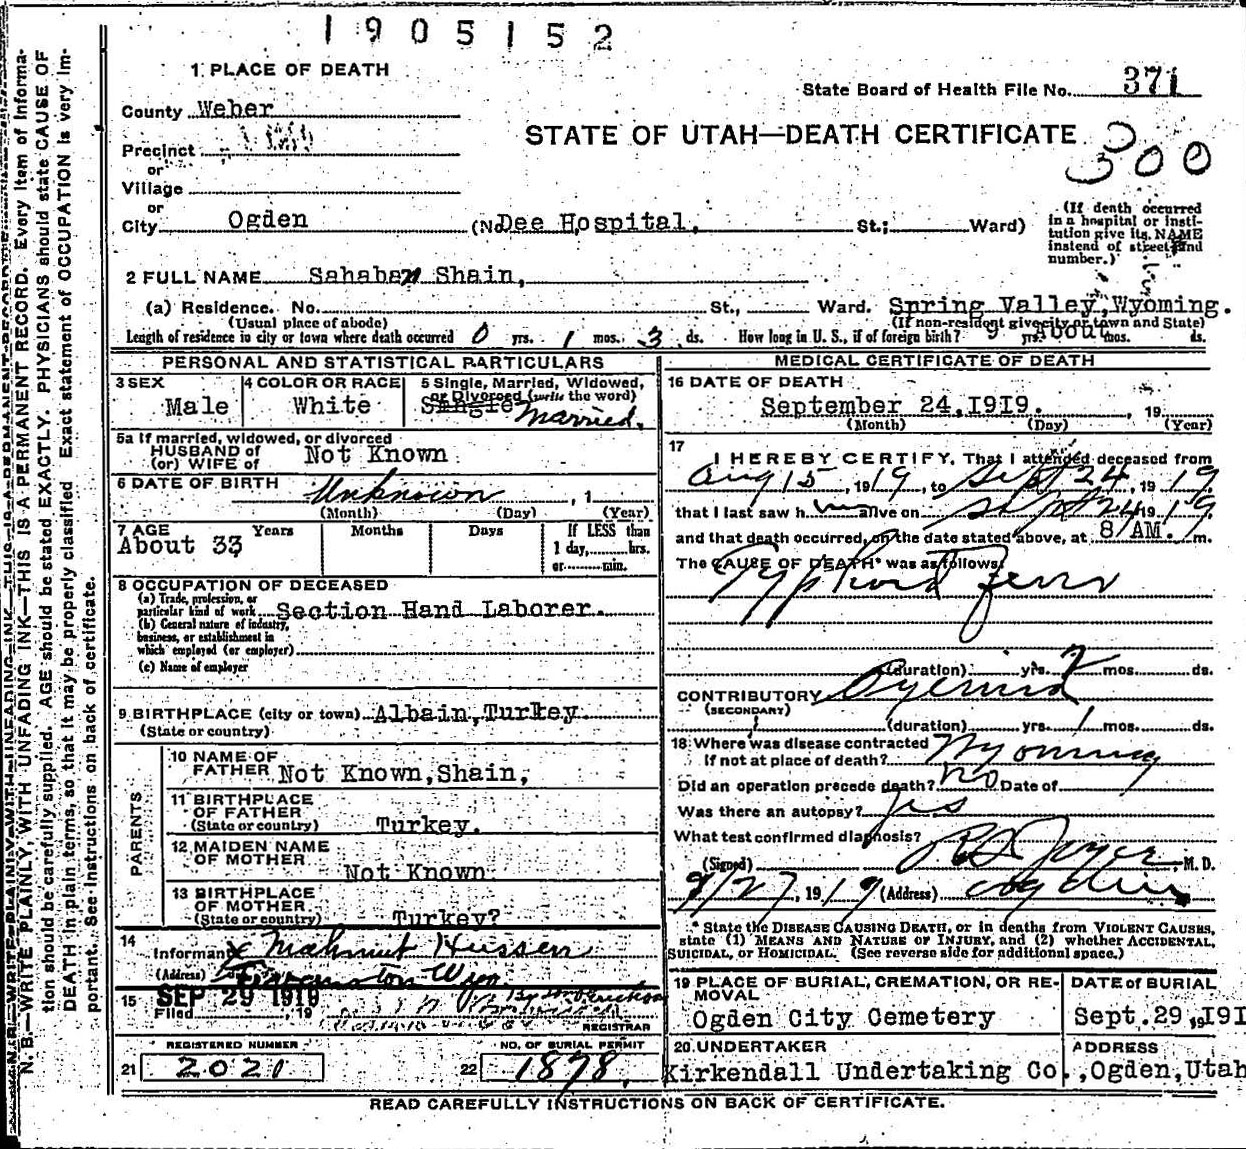 1905152
1 PLACE OF DEATH
State Board of Health File No. 371
County Weber
STATE OF UTAH—DEATH CERTIFICATE
300
Precinct
or
Village
or
City Ogden (No Dee Hospital, St.; Ward)
(If death occurred in a hospital or institution give its NAME instead of street and number.)
2 FULL NAME Sahaban Shain,
(a) Residence. No. St., Ward. Spring Valley, Wyoming.
(Usual place of abode) (If non-resident give city or town and State)
Length of residence in city or town where death occurred 0 yrs. 1 mos. 3 ds. How long in U. S., if of foreign birth? 9 yrs. About mos. ds.
PERSONAL AND STATISTICAL PARTICULARS
3 SEX Male
4 COLOR OR RACE White
5 Single, Married, Widowed, or Divorced (write the word)
Single Married.
5a If married, widowed, or divorced
HUSBAND of
(or) WIFE of Not Known
6 DATE OF BIRTH Unknown , 1
(Month) (Day) (Year)
7 AGE Years Months Days If LESS than
About 33 1 day,......hrs.
or......min.
8 OCCUPATION OF DECEASED
(a) Trade, profession, or
particular kind of work Section Hand Laborer.
(b) General nature of industry,
business, or establishment in
which employed (or employer)
(c) Name of employer
9 BIRTHPLACE (city or town) Albain,Turkey.
(State or country)
PARENTS
10 NAME OF
FATHER Not Known,Shain,
11 BIRTHPLACE
OF FATHER
(State or country) Turkey.
12 MAIDEN NAME
OF MOTHER
Not Known
13 BIRTHPLACE
OF MOTHER
(State or country) Turkey?
14 Informant x Mahmut Hussen
(Address) Wyo.
15 SEP 29 1919
Filed , 19
REGISTRAR
REGISTERED NUMBER
21 2021
NO. OF BURIAL PERMIT
22 1878.
MEDICAL CERTIFICATE OF DEATH
16 DATE OF DEATH
September 24,1919. , 19
(Month) (Day) (Year)
17 I HEREBY CERTIFY, That I attended deceased from
Aug 15, 1919, to Sept 24, 1919
that I last saw him alive on Sept 24 1919,
and that death occurred, on the date stated above, at 8/AM. m.
The CAUSE OF DEATH* was as follows:
Typhoid fever
(duration) yrs. 2 mos. ds.
CONTRIBUTORY Pyemia
(SECONDARY)
(duration) yrs. 1 mos. ds.
18 Where was disease contracted
If not at place of death? Wyoming
Did an operation precede death? no Date of
Was there an autopsy? yes
What test confirmed diagnosis?
(Signed) , M. D.
9/27, 1919 (Address) Ogden
* State the DISEASE CAUSING DEATH, or in deaths from VIOLENT CAUSES,
state (1) MEANS AND NATURE OF INJURY, and (2) whether ACCIDENTAL,
SUICIDAL, or HOMICIDAL. (See reverse side for additional space.)
19 PLACE OF BURIAL, CREMATION, OR REMOVAL
Ogden City Cemetery
DATE of BURIAL
Sept.29,191
20 UNDERTAKER
Kirkendall Undertaking Co.,
ADDRESS
Ogden,Utah
READ CAREFULLY INSTRUCTIONS ON BACK OF CERTIFICATE.
N. B.—WRITE PLAINLY, WITH UNFADING INK—THIS IS A PERMANENT RECORD. Every item of information should be carefully supplied. AGE should be stated EXACTLY. PHYSICIANS should state CAUSE OF DEATH in plain terms, so that it may be properly classified. Exact statement of OCCUPATION is very important. See instructions on back of certificate.